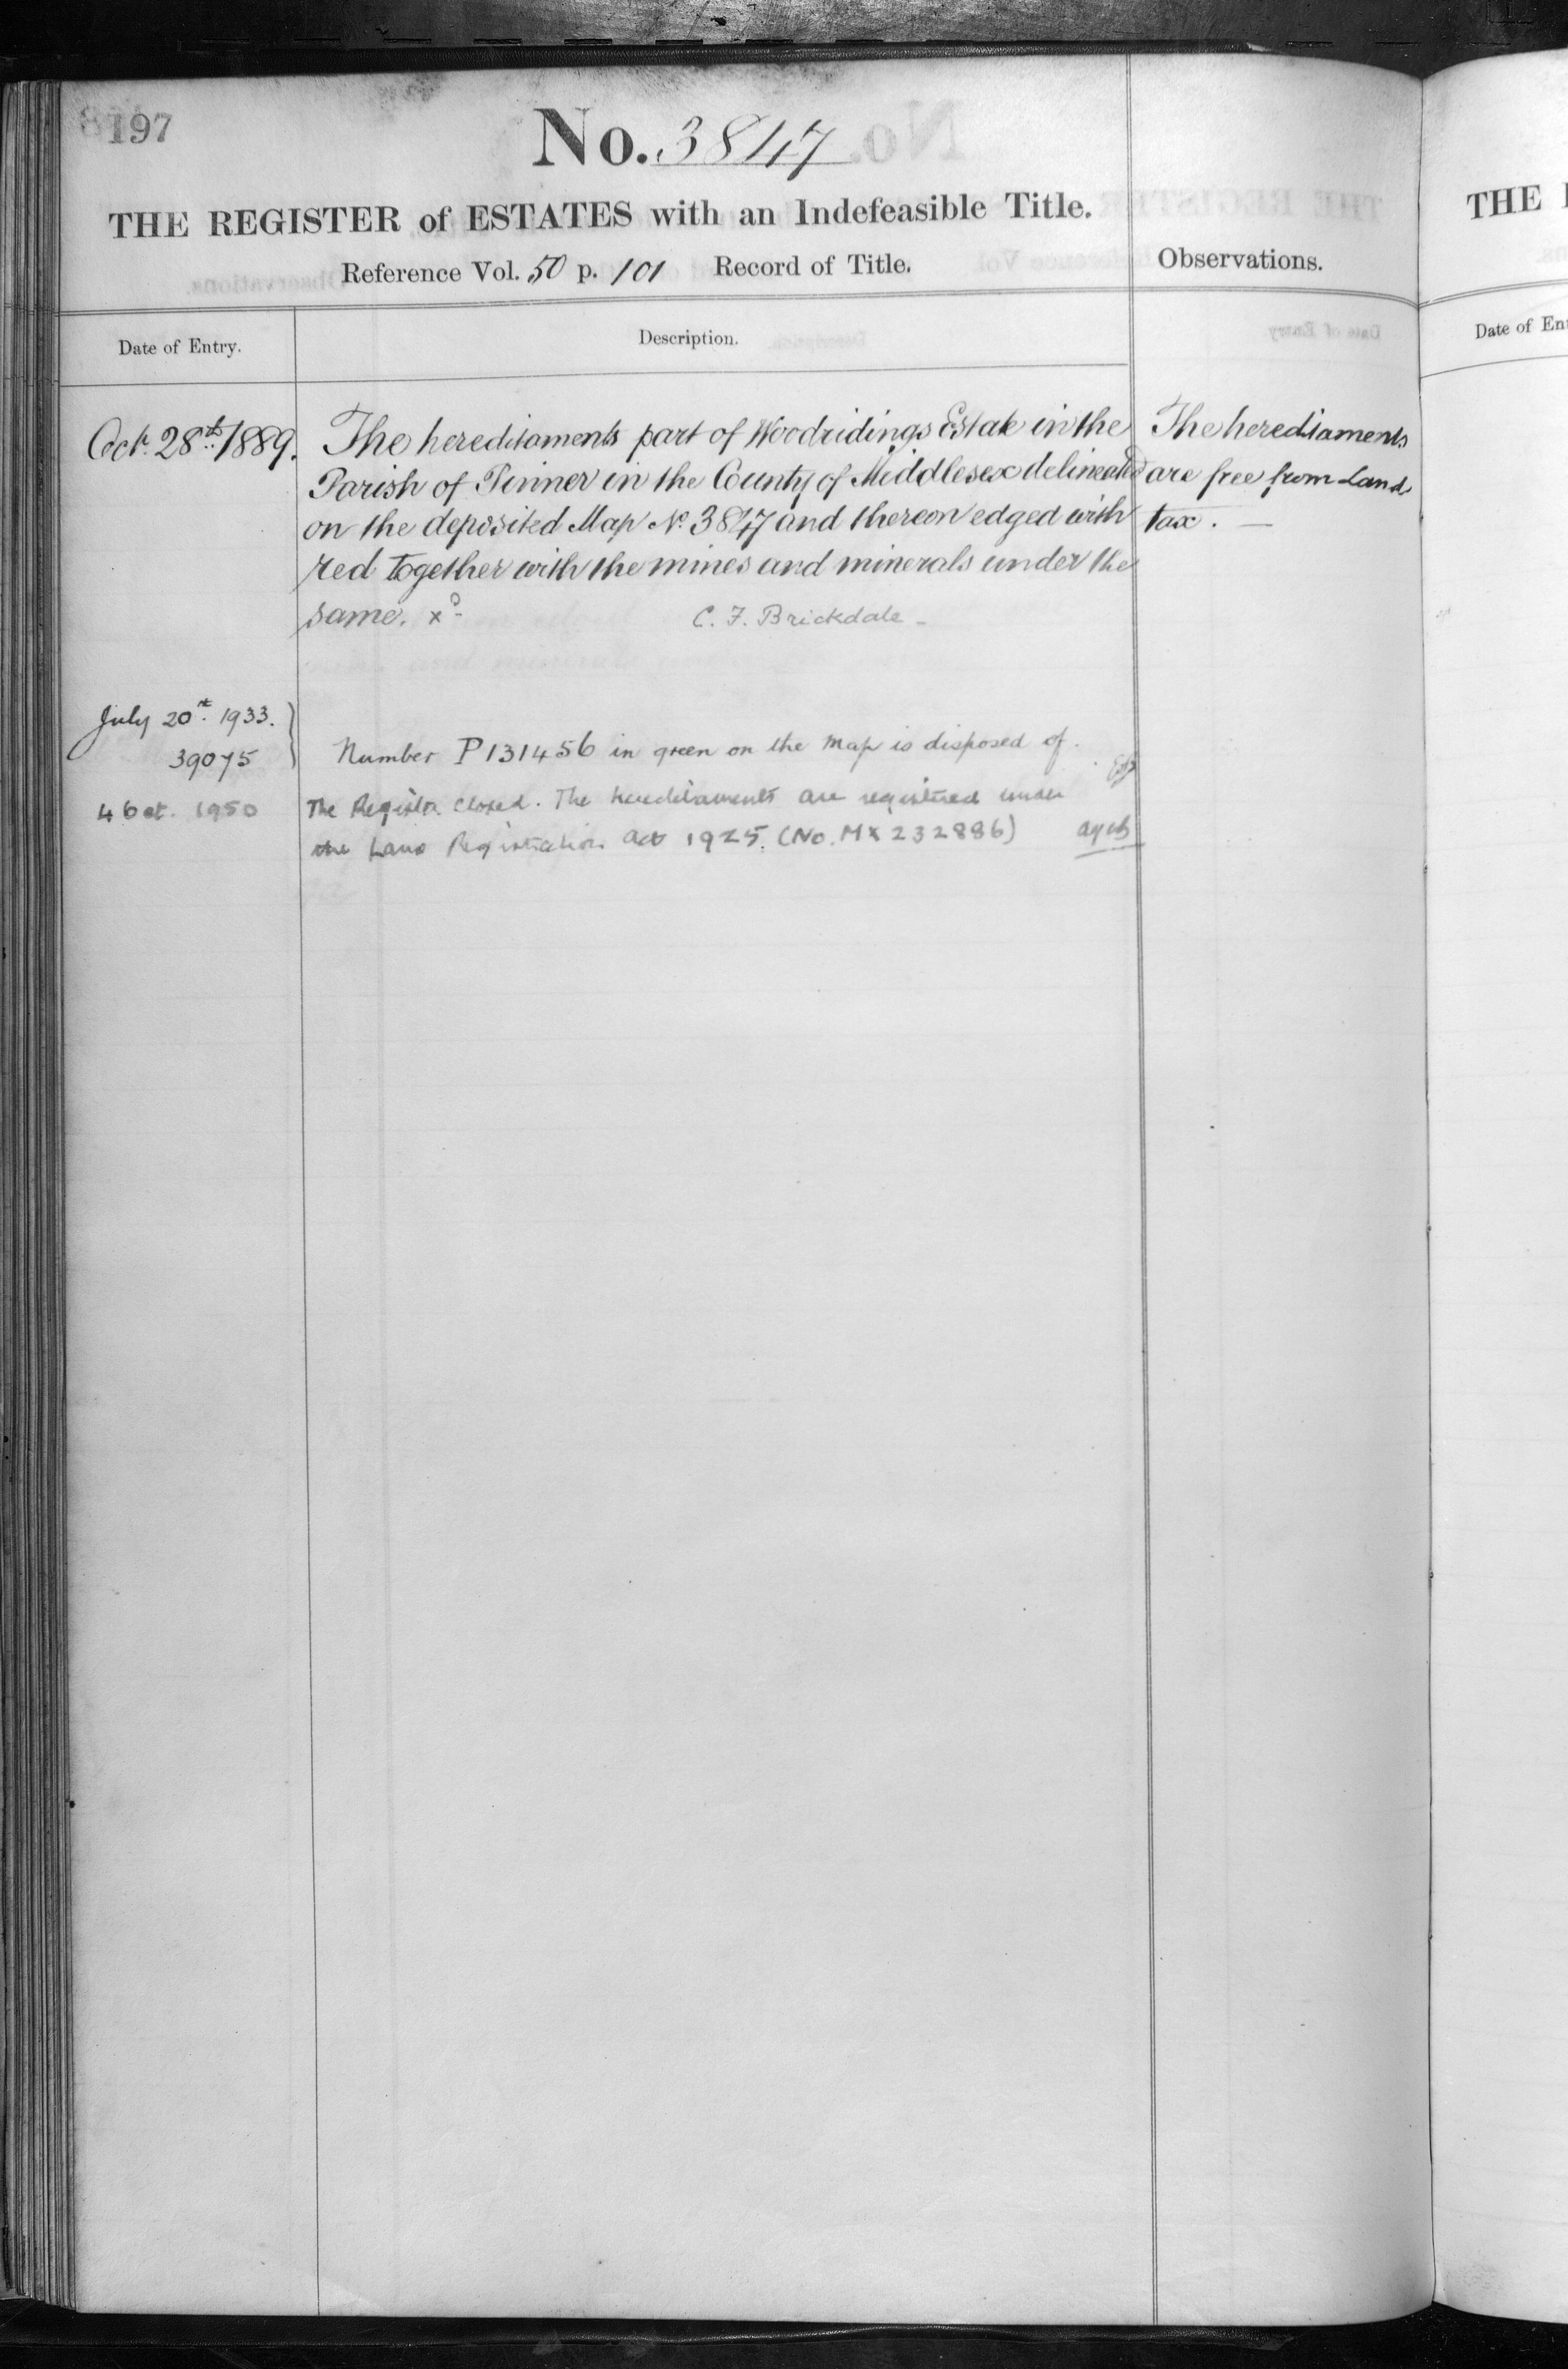 197
No. 3847
THE REGISTER of ESTATES with an Indefeasible Title.
Reference Vol. 50 p. 101 Record of Title.
Observations.
Date of Entry.
Description.
Oct. 28th. 1889.
The hereditaments part of Woodridings Estate in the
Parish of Pinner in the County of Middlesex delineated
on the deposited Map No. 3847 and thereon edged with
red together with the mines and minerals under the
same. x
C. F. Brickdale
The hereditaments
are free from Land
tax. —
July 20th. 1933.
39075
Number P131456 in green on the Map is disposed of.
4 Oct. 1950
The Register closed. The hereditaments are registered under
the Land Registration Act 1925. (No. MX 232886)
THE
Date of En